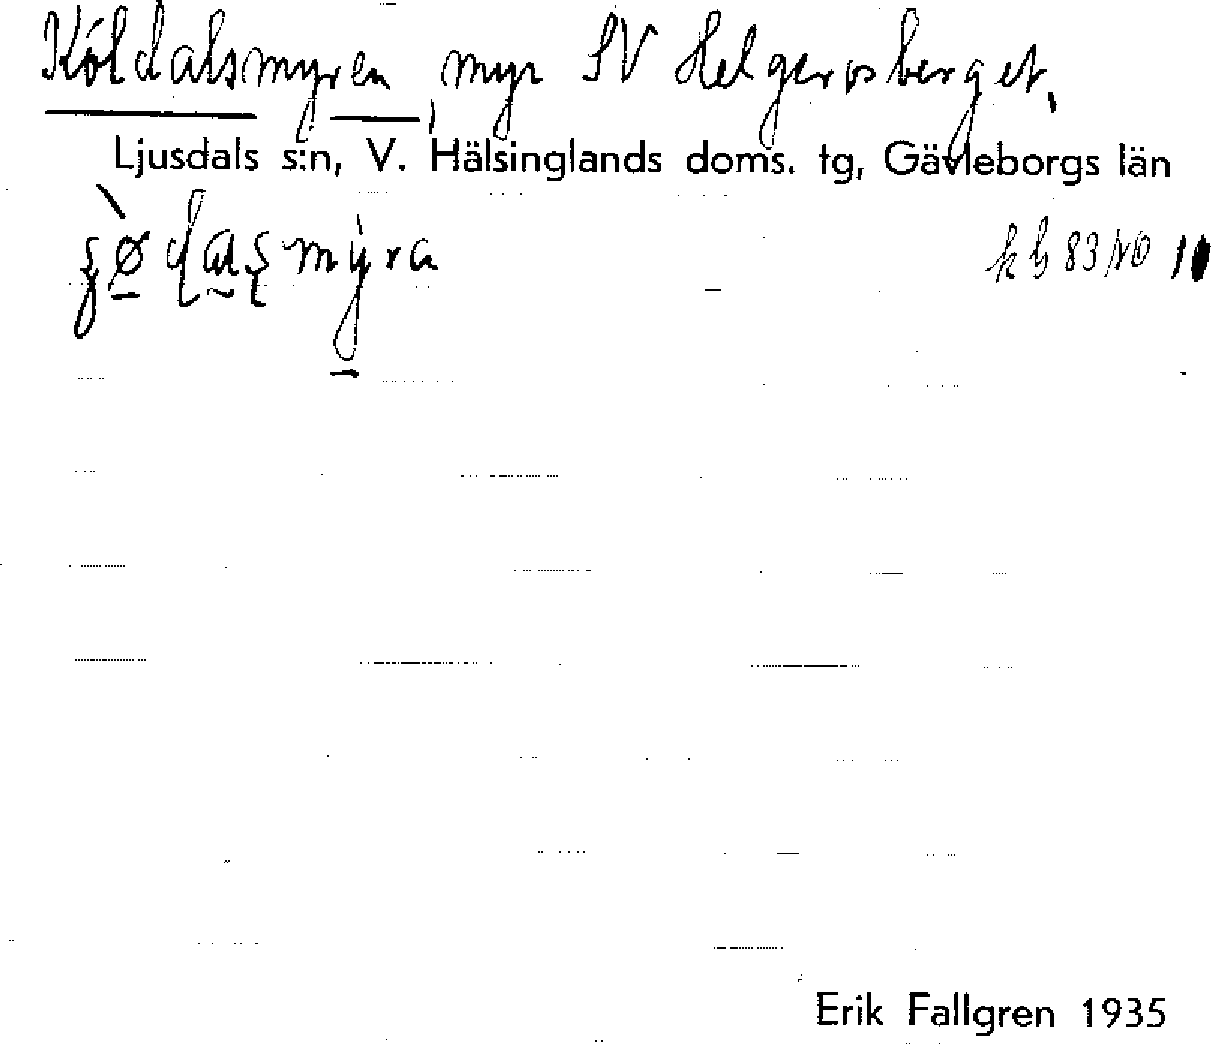 Köldalsmyren, myr SV Helgerosberget.
Ljusdals s:n, V. Hälsinglands doms. tg, Gävleborgs län
kb 83 NO
Erik Fallgren 1935